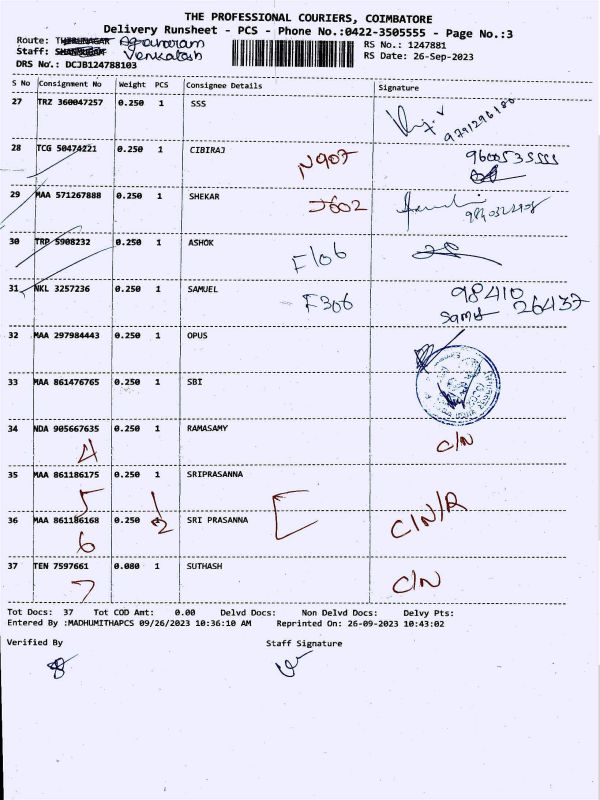 THE PROFESSIONAL COURIERS, COIMBATORE
Delivery Runsheet - PCS - Phone No.:0422-3505555 - Page No.:3
Route: THIRUNAGAR Agraharam
RS No.: 1247881
Staff: Venkatesh
RS Date: 26-Sep-2023
DRS No.: DCJB124788103
S No Consignment No Weight PCS Consignee Details Signature
27 TRZ 360047257 0.250 1 SSS
9791296186
28 TCG 50474221 0.250 1 CIBIRAJ N907 9600535555
29 MAA 571267888 0.250 1 SHEKAR J602
30 TRP 5908232 0.250 1 ASHOK F106
31 NKL 3257236 0.250 1 SAMUEL F306 98410
Samy 26437
32 MAA 297984443 0.250 1 OPUS
33 MAA 861476765 0.250 1 SBI
34 NDA 905667635 0.250 1 RAMASAMY C/N
4
35 MAA 861186175 0.250 1 SRIPRASANNA
5 1
36 MAA 861186168 0.250 2 SRI PRASANNA C/N/R
6
37 TEN 7597661 0.080 1 SUTHASH C/N
7
Tot Docs: 37 Tot COD Amt: 0.00 Delvd Docs: Non Delvd Docs: Delvy Pts:
Entered By :MADHUMITHAPCS 09/26/2023 10:36:10 AM Reprinted On: 26-09-2023 10:43:02
Verified By Staff Signature